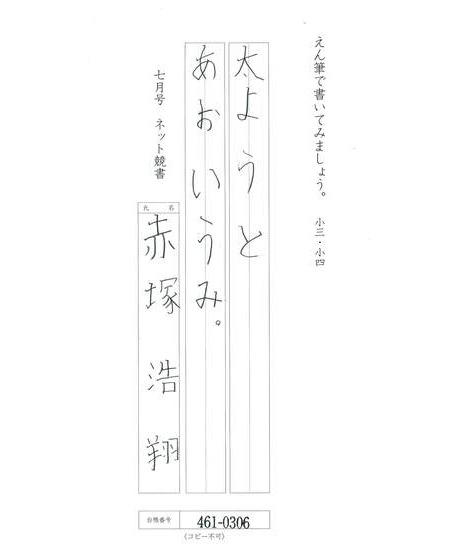 えん筆で書いてみましょう。 小三・小四
太ようと
あおいうみ。
七月号 ネット競書
氏名
赤塚浩翔
台帳番号 461-0306
(コピー不可)